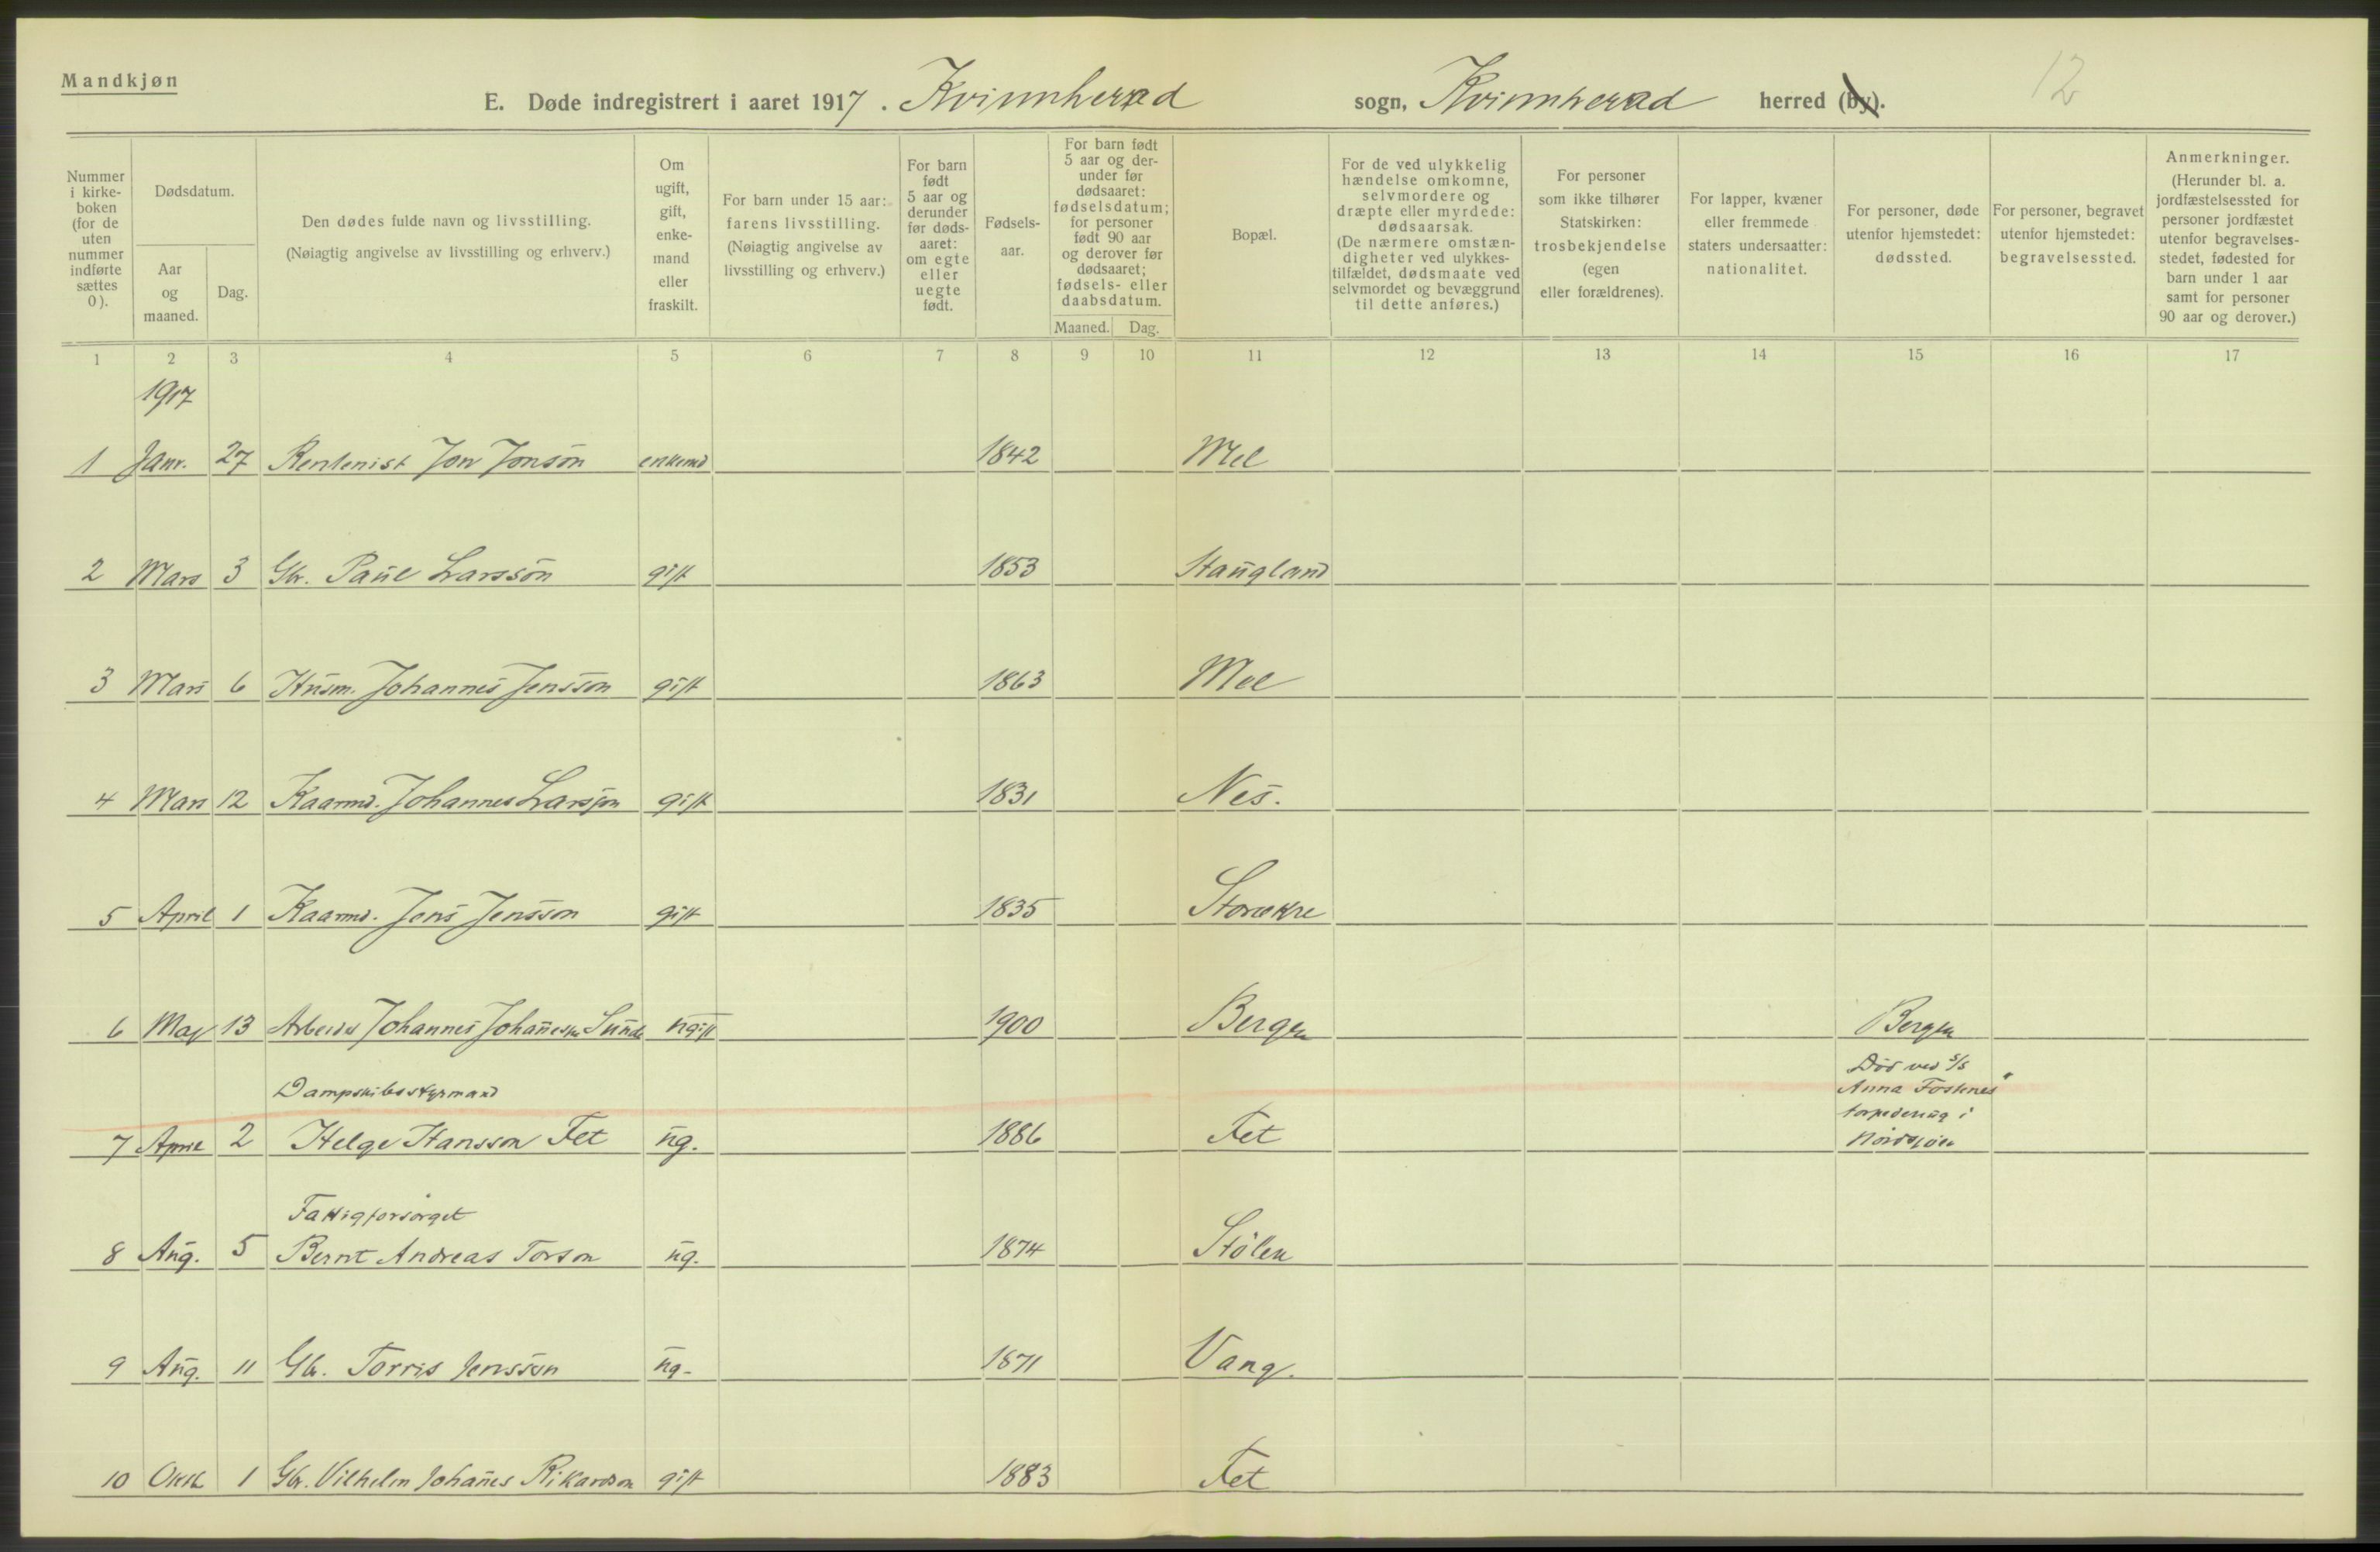 Mandkjøn
12
E. Døde indregistrert i aaret 1917. Kvinnherad sogn, Kvinnherad herred (by).
Nummer i kirke- boken (for de uten nummer indførte sættes 0).
Dødsdatum.
Aar og maaned.
Dag.
Den dødes fulde navn og livsstilling. (Nøiagtig angivelse av livsstilling og erhverv.)
Om ugift, gift, enke- mand eller fraskilt.
For barn under 15 aar: farens livsstilling. (Nøiagtig angivelse av livsstilling og erhverv.)
For barn født 5 aar og derunder før døds- aaret: om egte eller uegte født.
Fødsels- aar.
For barn født 5 aar og der- under før dødsaaret: fødselsdatum; for personer født 90 aar og derover før dødsaaret; fødsels- eller daabsdatum.
Maaned. Dag.
Bopæl.
For de ved ulykkelig hændelse omkomne, selvmordere og dræpte eller myrdede: dødsaarsak. (De nærmere omstæn- digheter ved ulykkes- tilfældet, dødsmaate ved selvmordet og bevæggrund til dette anføres.)
For personer som ikke tilhører Statskirken: trosbekjendelse (egen eller forældrenes).
For lapper, kvæner eller fremmede staters undersaatter: nationalitet.
For personer, døde utenfor hjemstedet: dødssted.
For personer, begravet utenfor hjemstedet: begravelsessted.
Anmerkninger. (Herunder bl. a. jordfæstelsessted for personer jordfæstet utenfor begravelses- stedet, fødested for barn under 1 aar samt for personer 90 aar og derover.)
1 2 3 4 5 6 7 8 9 10 11 12 13 14 15 16 17
1917
1 Janr. 27 Rentenist Jon Jonson enkemd 1842 Mel
2 Mars 3 Gbr. Paul Larsson gift 1853 Haugland
3 Mars 6 Husm. Johannes Jensson gift 1863 Mel
4 Mars 12 Kaarmd. Johannes Larsson gift 1831 Nes.
5 April 1 Kaarmd. Jens Jensson gift 1835 Storækre
6 Maj 13 Arbeider Johannes Johannesen Sunde ugift 1900 Bergen Bergen
Dampskibsstyrmand
Død ved S/S
Anna Fostenes"
torpedering i
7 April 2 Helge Hansson Fet ug. 1886 Fet Nordsjöen
Fattigforsørget
8 Aug. 5 Bernt Andreas Torson ug. 1874 Stölen
9 Aug. 11 Gbr. Torris Jensson ug- 1871 Vang.
10 Oktb 1 Gbr. Vilhelm Johanes Rikardson gift 1883 Fet